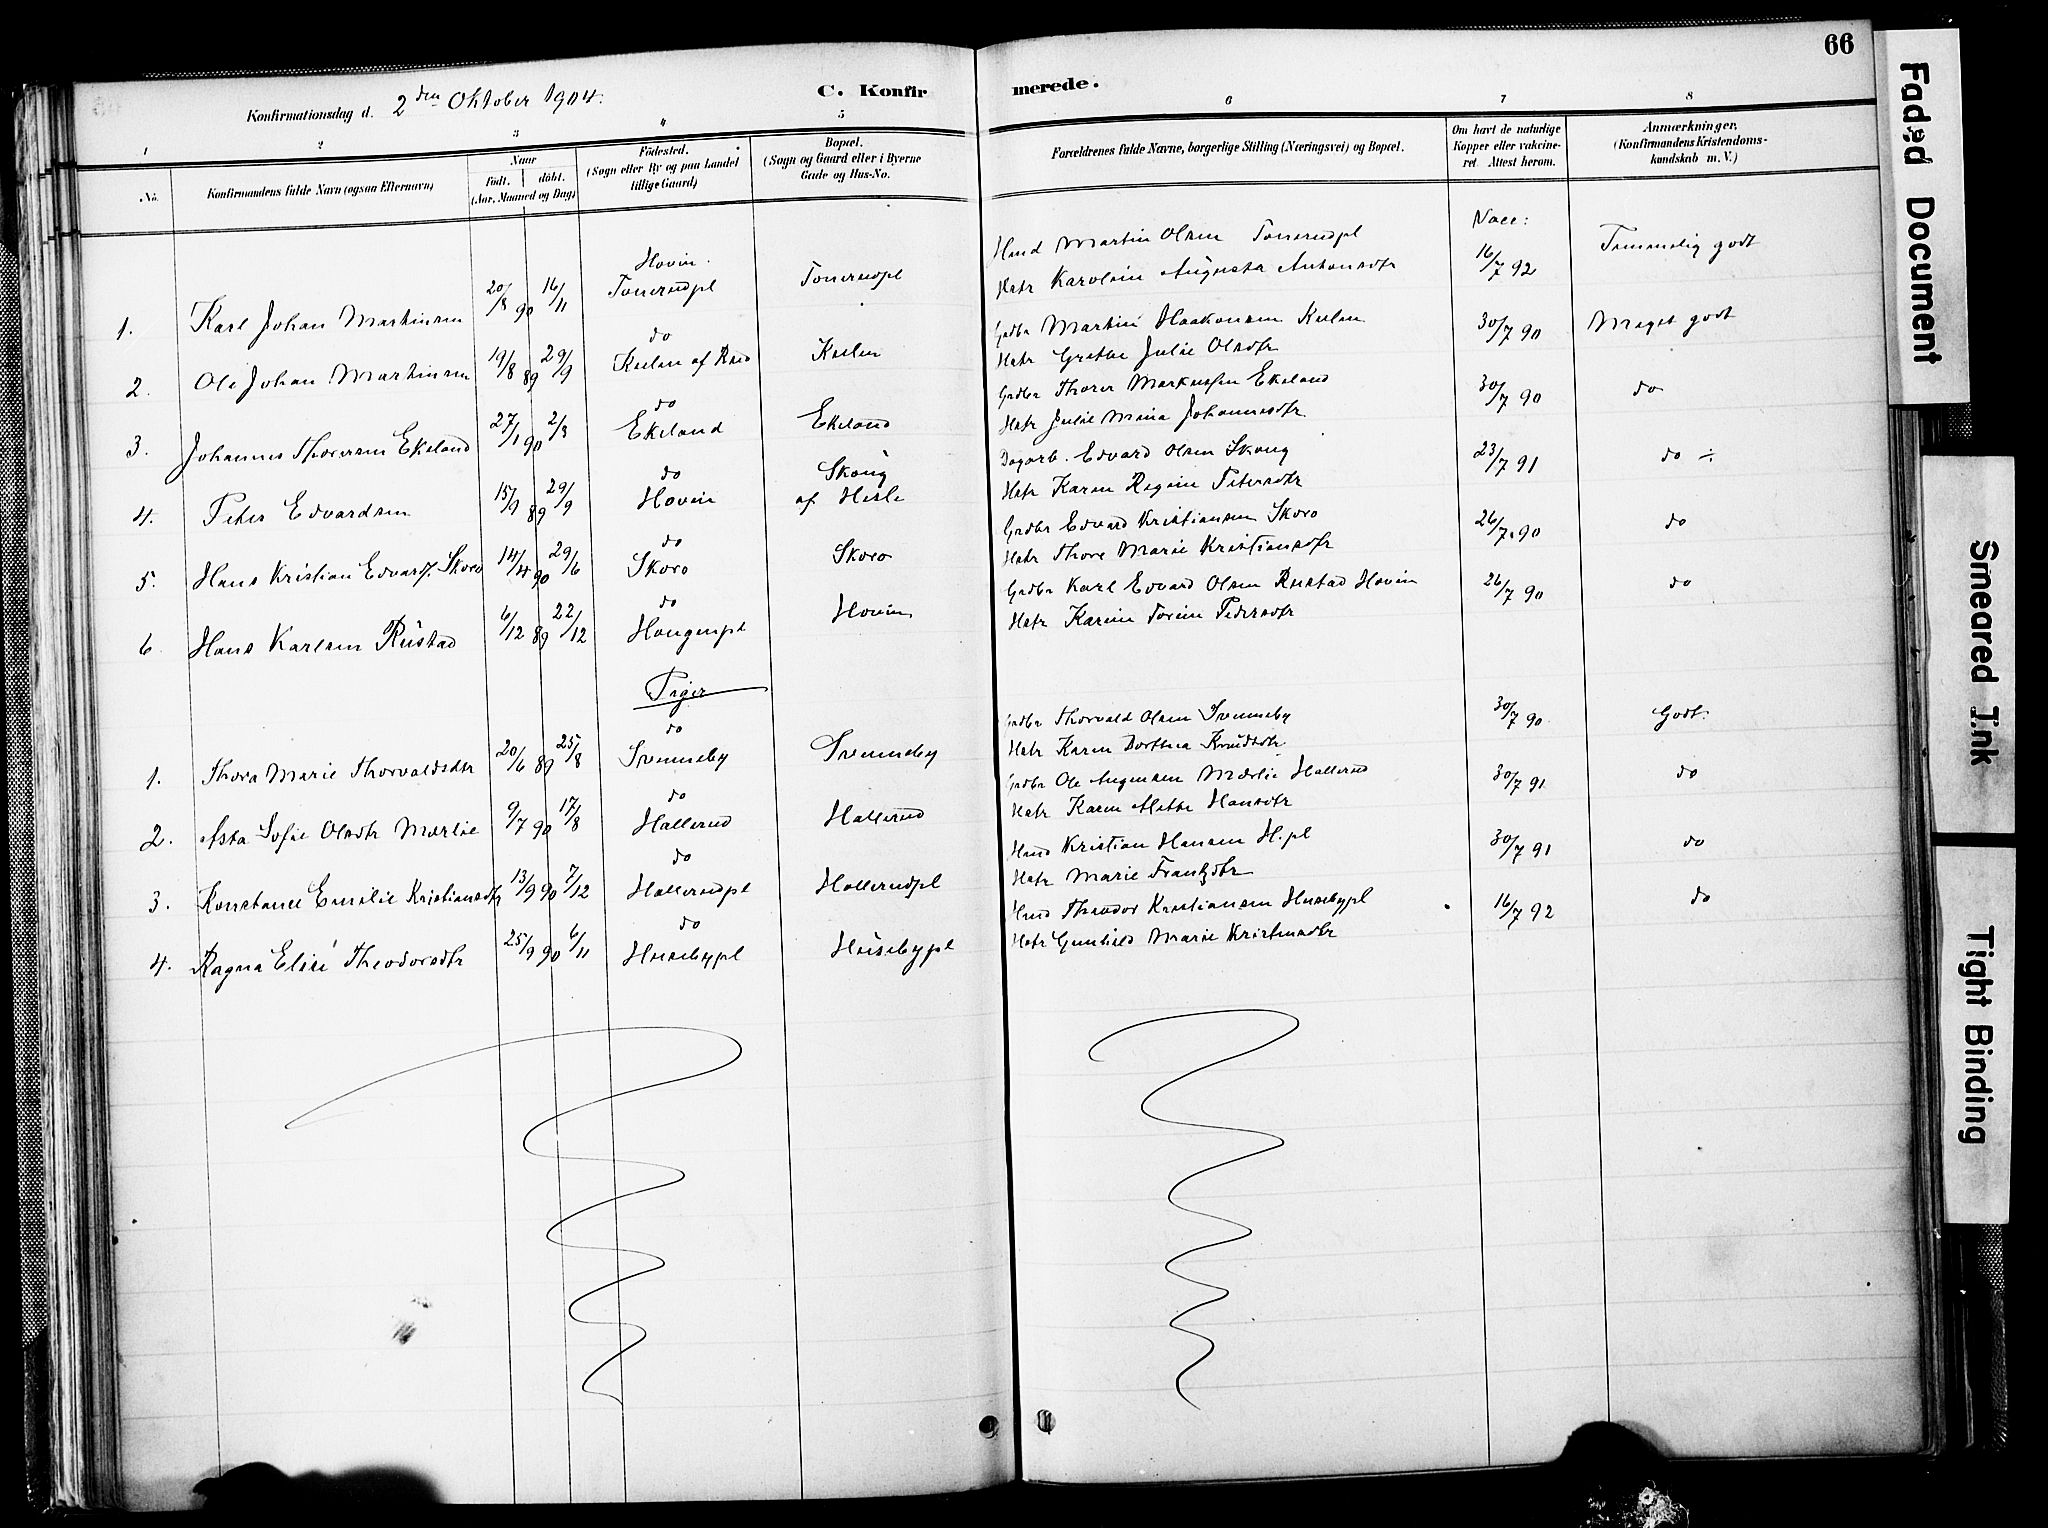 66
C. Konfirmerede.
Konfirmationsdag d. 2den Oktober 1904.
1 2 3 4 5 6 7 8
No.
Konfirmandens fulde Navn (ogsaa Efternavn)
Naar
Födt. döbt.
(Aar, Maaned og Dag)
Födested.
(Sogn eller By og paa Landet tillige Gaard)
Bopæl.
(Sogn og Gaard eller i Byerne Gade og Hus-No.
Forældrenes fulde Navne, borgerlige Stilling (Næringsvei) og Bopæl.
Om havt de naturlige Kopper eller vakcineret. Attest herom.
Anmærkninger.
(Konfirmandens Kristendomskundskab m. V.)
1. Karl Johan Martinsen 20/8 90 16/11 Hovin. Tonerudpl Tonerudpl
Hmd Martin Olsen Tonerudpl
Hstr Karolein Augusta Antonsdtr
Vacc: 16/7 92 Temmelig godt
2. Ole Johan Martinsen 19/8 89 29/9 do
Grdbr Martin Haakonsen
Hstr Grethe Julie Olsdtr
30/7 90 Meget godt
3. Johannes Thoresen Ekeland 27/1 90 2/3 do Ekeland Ekeland
Grdbr Thorer Markussen Ekeland
Hstr Julie Mina Johannesdtr
30/7 90 do
4. Peter Edvardsen 15/7 89 29/9 do Hovin Skoug af Hesle
Dagarb. Edvard Olsen Skoug
Hstr Karen Regine Petersdtr
23/7 91 do ÷
5. Hans Kristian Edvards. Skoro 14/4 90 29/6 do Skoro Skoro
Grdbr Edvard Kristiansen Skoro
Hstr Thore Marie Kristiansdtr
26/7 90 do
6. Hans Karlsen Rustad 6/12 89 22/12 do Haugenpl Hovin
Grdbr Karl Edvard Olsen Rustad Hovin
Hstr Karen Torine Pedersdtr
26/7 90 do
Piger
1. Thora Marie Thorvaldsdtr 20/6 89 25/8 do Svenneby Svenneby
Grdbr Thorvald Olsen Svenneby
Hstr Karen Dorthea Knudsdtr
30/7 90 Godt.
2. Asta Sofie Olsdtr Mærlie 9/7 90 17/8 do Hallerud Hallerud
Grdbr Ole Augensen Mærlie Hallerud
Hstr Karen Mette Hansdtr
30/7 91 do
3. Konstance Emilie Kristiansdtr 13/9 90 7/12 do Hallerudpl Hallerudpl
Hmd Kristian Hansen H.pl
Hstr Marie Frantzdtr
30/7 91 do
4. Ragna Elise Theodorsdtr 25/9 90 6/11 do Husebypl Husebypl
Hmd Theodor Kristiansen Husebypl
Hstr Gunhild Marie Kristensdtr
16/7 92 do
Faded Document
Smeared Ink
Tight Binding